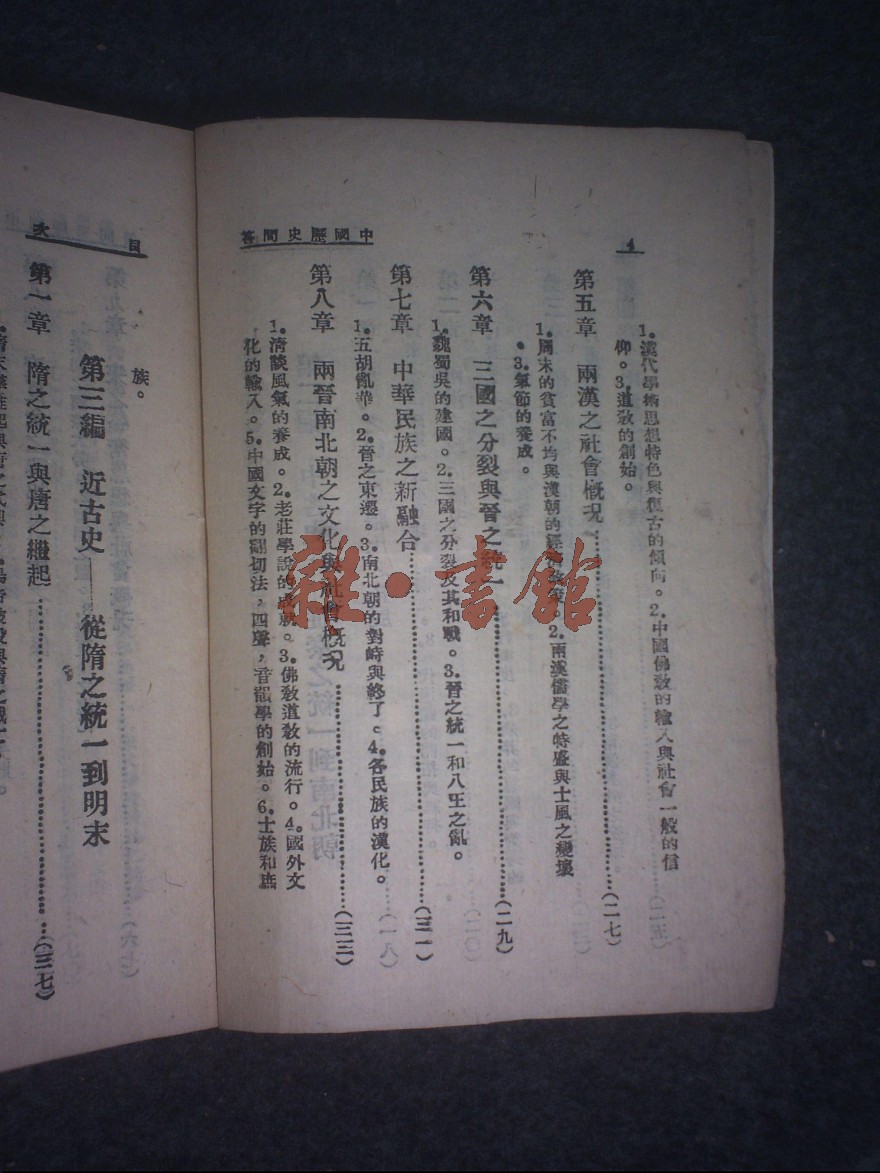 4
中國歷史問答
1.漢代學術思想特色與復古的傾向。2.中國佛敎的輸入與社會一般的信
仰。3.道敎的創始。
第五章　兩漢之社會概况……(二七)
1.周末的貧富不均與漢朝的經濟政策。2.兩漢儒學之特盛與士風之變壞
。3.氣節的養成。
第六章　三國之分裂與晉之統一……(二九)
1.魏蜀吳的建國。2.三國之分裂及其和戰。3.晉之統一和八王之亂。
第七章　中華民族之新融合……(三一)
1.五胡亂華。2.晉之東遷。3.南北朝的對峙與終了。4.各民族的漢化。
第八章　兩晉南北朝之文化與社會概况……(三三)
1.淸談風氣的養成。2.老莊學說的成就。3.佛敎道敎的流行。4.國外文
化的輸入。5.中國文字的翻切法，四聲，音韻學的創始。6.士族和庶
目次
族。
第三編　近古史——從隋之統一到明末
第一章　隋之統一與唐之繼起……(三七)
雜·書館